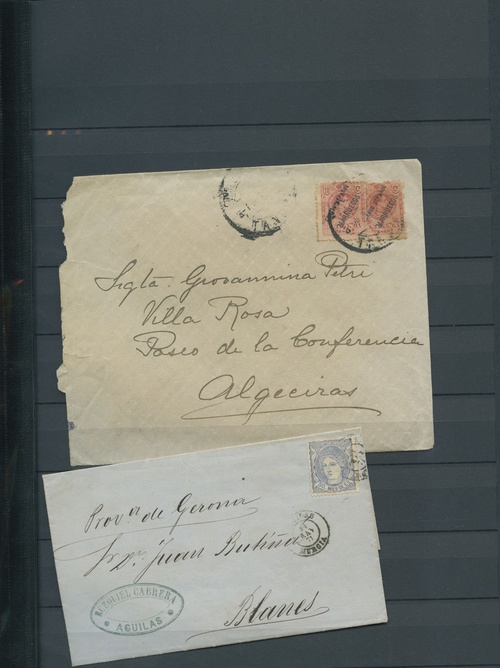 TAN
TAN
Srgta. Giovannina Petri
Villa Rosa
Paseo de la Conferencia
Algeciras
Prova de Gerona
Sr Dn. Juan
Blanes
MURCIA
EZEQUIEL CABRERA
AGUILAS